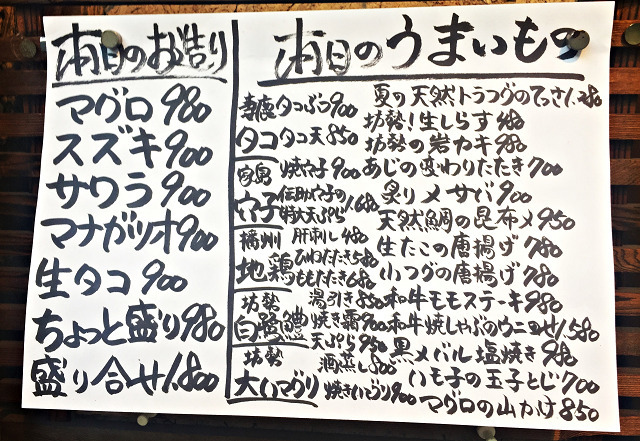 本日のお造り
マグロ 980
スズキ 900
サワラ 900
マナガツオ 900
生タコ 900
ちょっと盛り 980
盛り合せ 1.800
本日のうまいもの
タコ
タコぶつ 900
タコ天 850
家島
穴子
焼穴子 900
伝助穴子の
特大天ぷら 1.680
播州
地鶏
肝刺し 480
ひねたたき 580
ももたたき 680
坊勢
白鷺鱧
湯引き 850
焼き霜 900
天ぷら 950
坊勢
大ハマグリ
酒蒸し 800
焼きハマグリ 900
夏の天然トラフグのてっさ 1.280
坊勢!生しらす 480
坊勢の岩カキ 980
あじの変わりたたき 700
炙り〆サバ 900
天然鯛の昆布〆 950
生たこの唐揚げ 780
小フグの唐揚げ 780
和牛モモステーキ 980
和牛焼しゃぶのウニのせ 1.580
黒メバル塩焼き 980
ハモ子の玉子とじ 700
マグロの山かけ 850